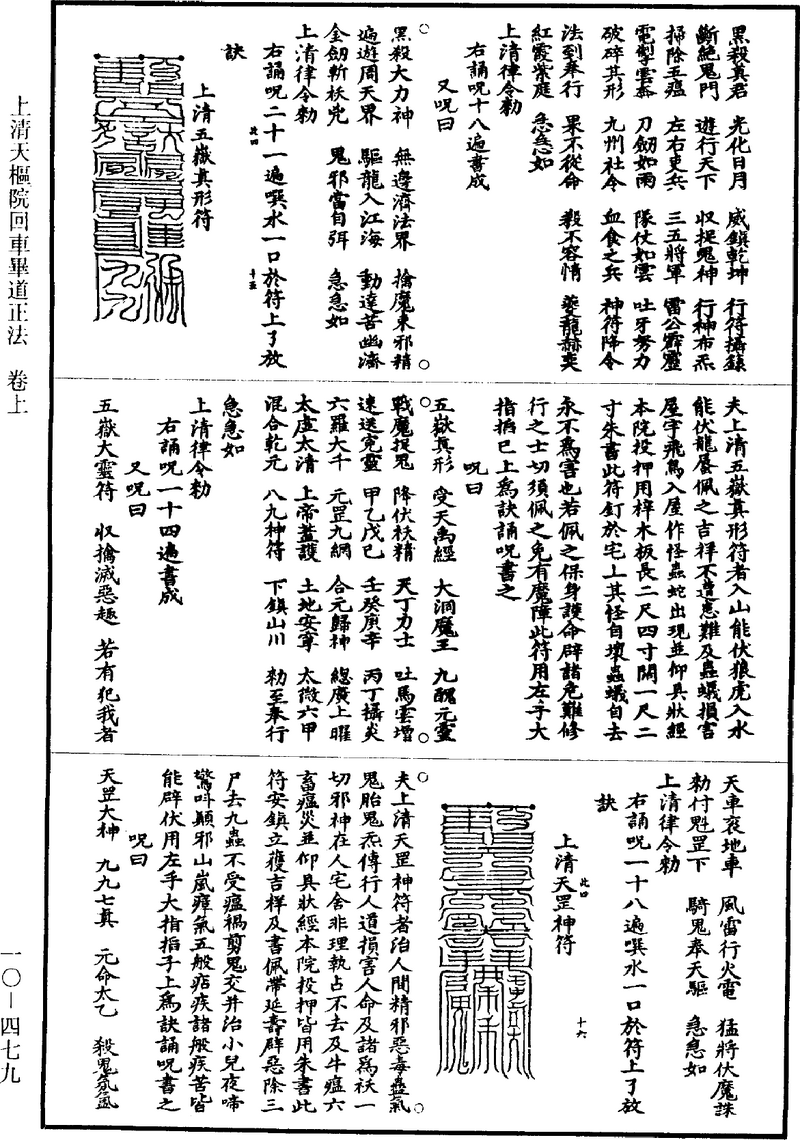 上清天樞院回車畢道正法　卷上
一〇—四七九
黑殺真君　光化日月　威鎮乾坤　行符攝籙
斷絕鬼門　遊行天下　収捉鬼神　行神布炁
掃除五瘟　左右吏兵　三五將軍　雷公霹靂
電掣雲奔　刀劒如雨　隊仗如雲　吐牙努力
破碎其形　九州社令　血食之兵　神符降令
法到奉行　果不從命　殺不容情　夔龍赫奕
紅霞紫庭　急急如
上清律令勑
右誦呪十八遍書成
又呪曰
黑殺大力神　無邊濟法界　擒魔束邪精
遍遊周天界　驅龍入江海　動達苦幽濟
金劒斬祅兇　鬼邪當自弭　急急如
上清律令勑
右誦呪二十一遍噀水一口於符上了放
訣
此四
十五
上清五嶽真形符
夫上清五嶽真形符者入山能伏狼虎入水
能伏龍蜃佩之吉祥不遭患難及蟲蟻損害
屋宇飛鳥入屋作怪蟲蛇出現並仰具狀經
本院投押用梓木板長二尺四寸闊一尺二
寸朱書此符釘於宅上其怪自壞蟲蟻自去
永不為害也若佩之保身護命辟諸危難修
行之士切須佩之免有魔障此符用左手大
指掐巳上為訣誦呪書之
呪曰
五嶽真形　受天禹經　大洞魔王　九醜元靈
戰魔捉鬼　降伏祅精　天丁力士　吐馬雲增
速送冤靈　甲乙戊巳　壬癸庚辛　丙丁攝炎
六羅大千　元罡九網　合元歸神　總廣上曜
太虛太清　上帝蓋護　土地安寧　太微六甲
混合乾元　八九神符　下鎮山川　勑至奉行
急急如
上清律令勑
右誦呪一十四遍書成
又呪曰
五嶽大靈符　収擒滅惡趣　若有犯我者
天車衮地車　風雷行火電　猛將伏魔誅
勑付魁罡下　騎鬼奉天驅　急急如
上清律令勑
右誦呪一十八遍噀水一口於符上了放
訣
此口
十六
上清天罡神符
夫上清天罡神符者治人間精邪惡毒蠱氣
鬼胎鬼炁傳行人道損害人命及諸為祅一
切邪神在人宅舍非理執占不去及牛瘟六
畜瘟災並仰具狀經本院投押皆用朱書此
符安鎮立獲吉祥及書佩帶延壽辟惡除三
尸去九蟲不受瘟禍剪鬼交并治小兒夜啼
驚叫顛邪山嵐瘴氣五般痁疾諸般疾苦皆
能辟伏用左手大指掐子上為訣誦呪書之
呪曰
天罡大神　九九七真　元命太乙　殺鬼氛氳